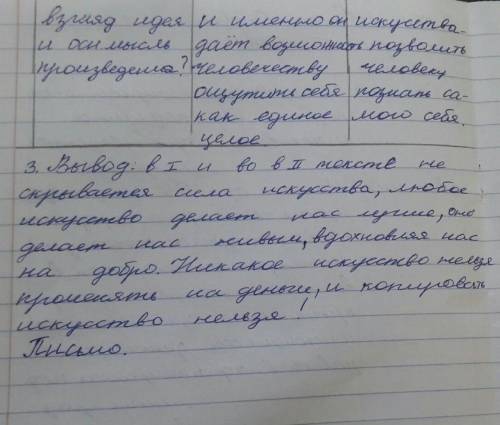 взгляд идея и именно он искусства-
и осн мысль даёт возможность позволить
произведения? человечеству человеку
ощутить себя познать са-
как единое мого себя.
целое
3. Вывод: в I и во в II тексте не
скрывается сила искусства, любое
искусство делает нас лучше, оно
делает нас живым, вдохновляя нас
на добро. Никакое искусство нельзя
променять на деньги, и копировать
искусство нельзя!
Письмо.